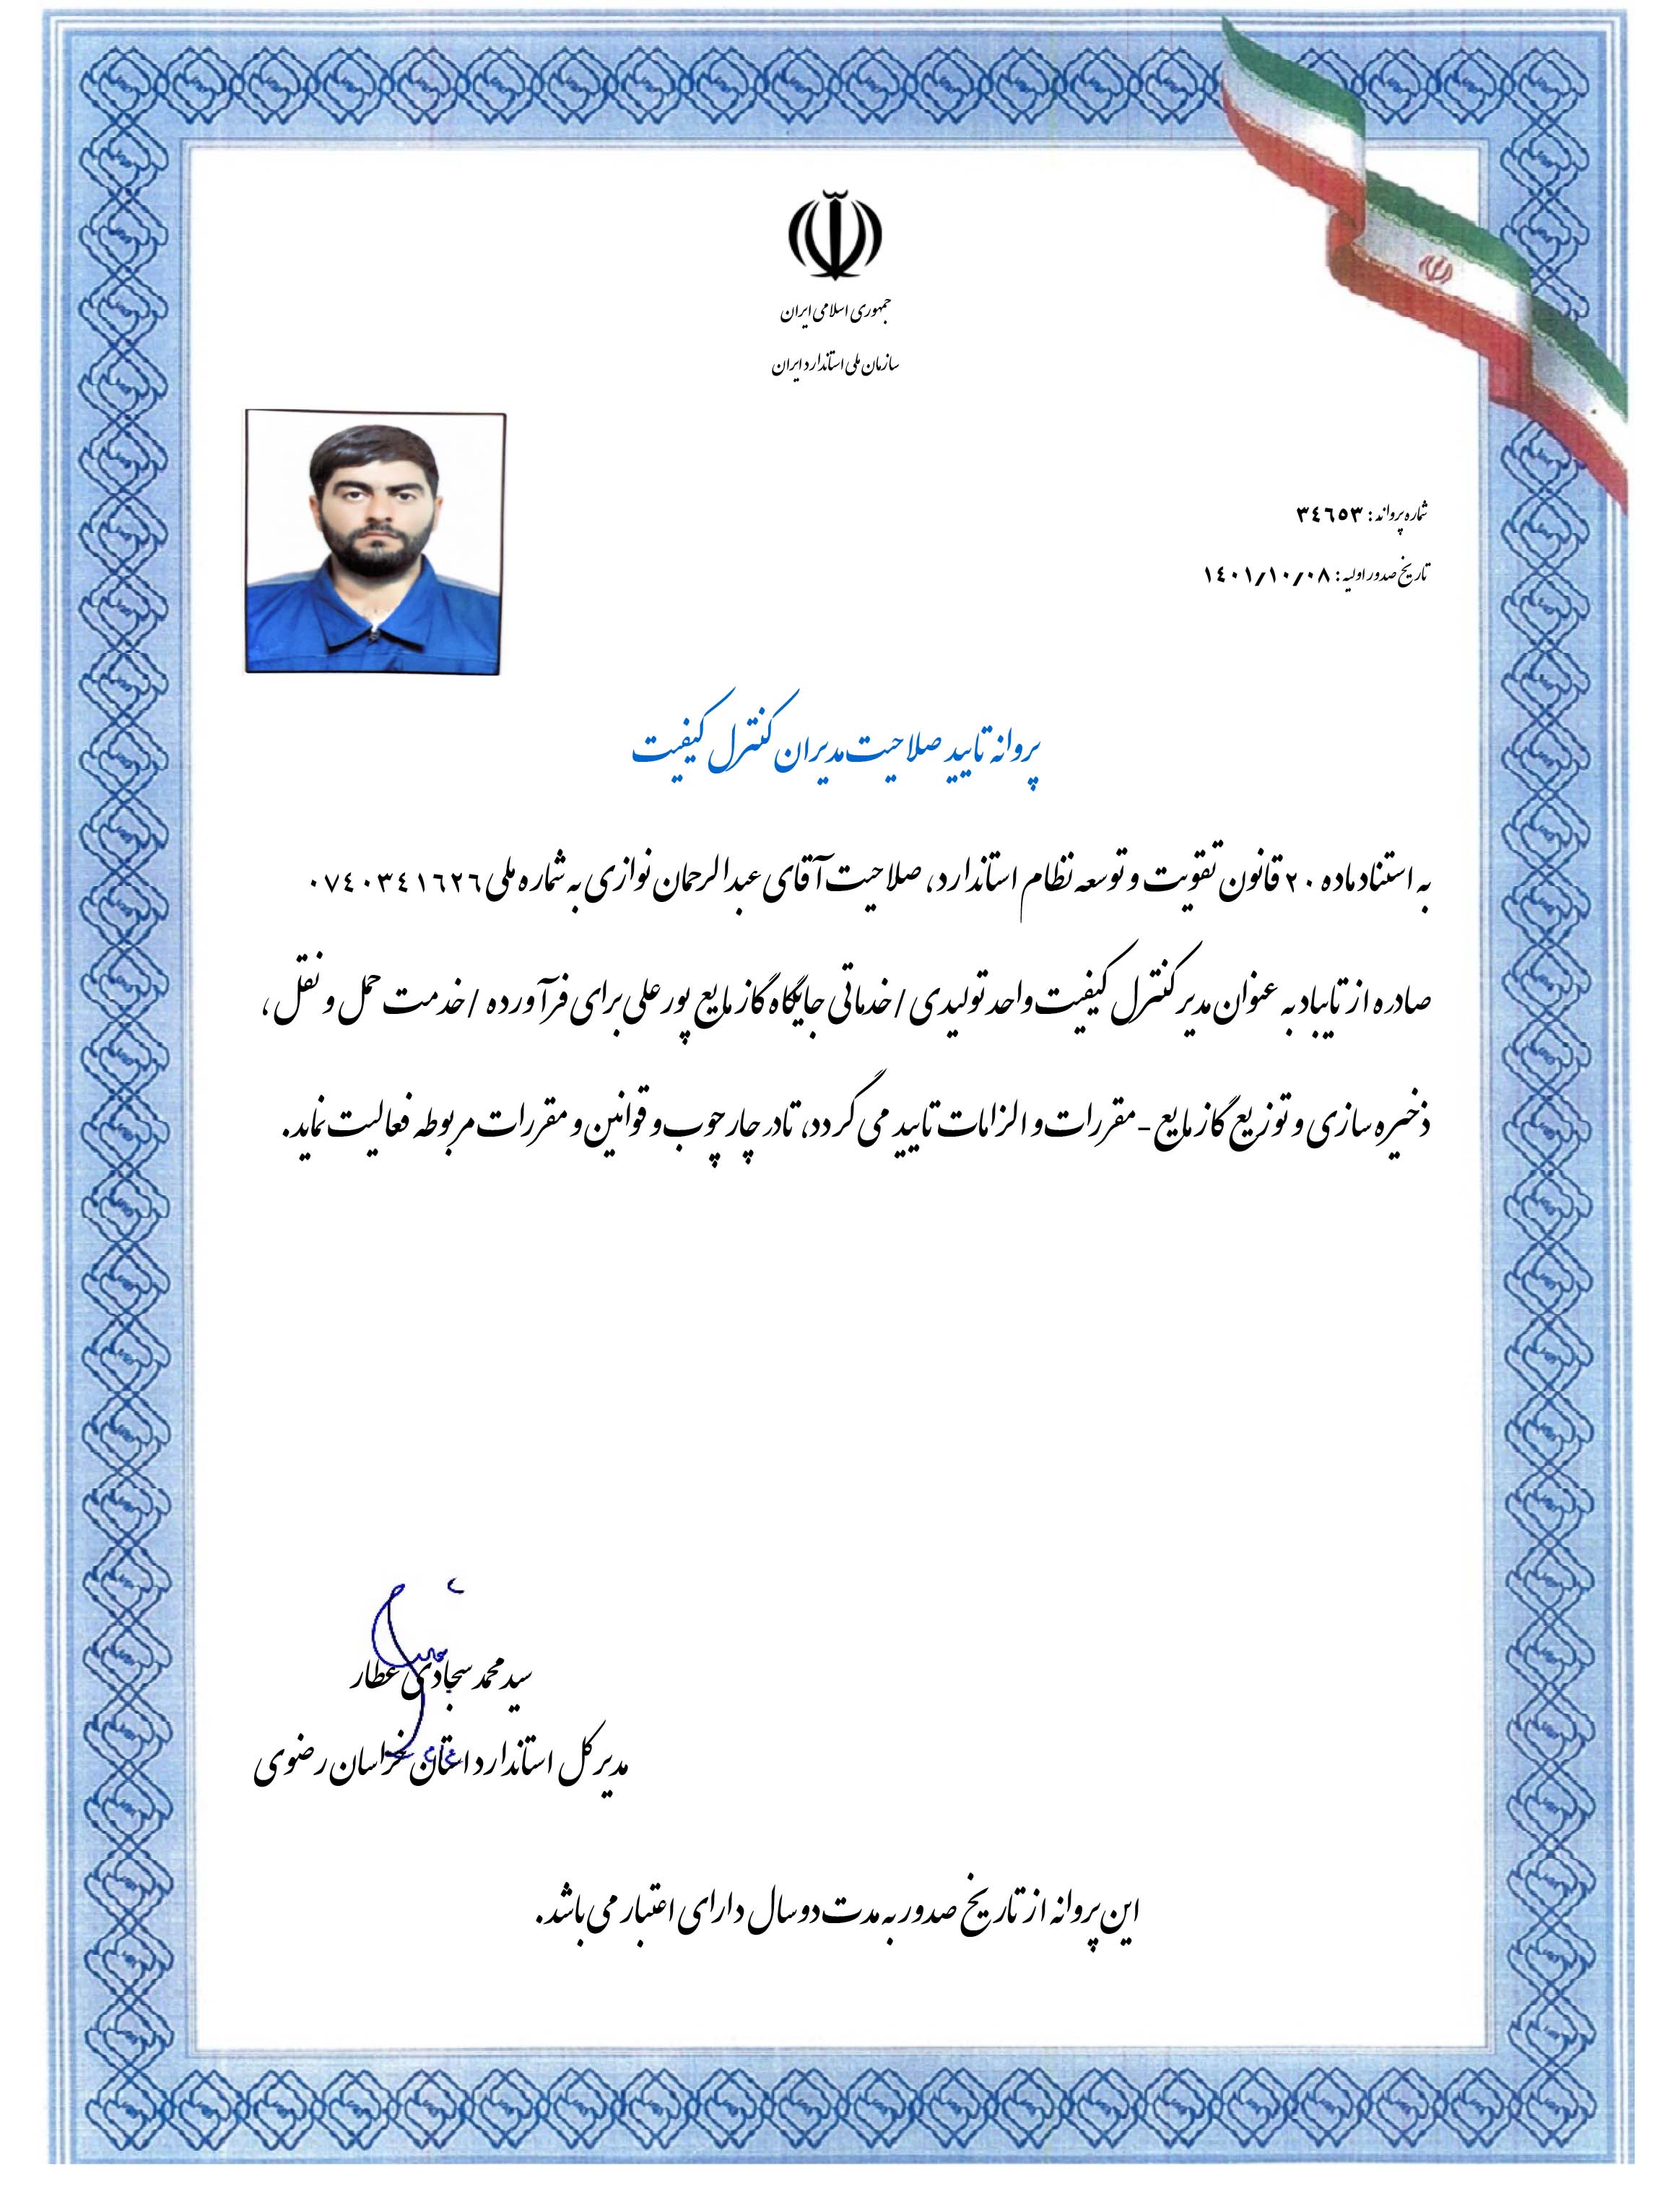 جمهوری اسلامی ایران
سازمان ملی استاندارد ایران
شماره پروانه : ٣٤٦٥٣
تاریخ صدور اولیه : ١٤٠١/١٠/٠٨
پروانه تایید صلاحیت مدیران کنترل کیفیت
به استناد ماده ٢٠ قانون تقویت و توسعه نظام استاندارد، صلاحیت آقای عبدالرحمان نوازی به شماره ملی ٠٧٤٠٣٤١٦٢٦
صادره از تایباد به عنوان مدیر کنترل کیفیت واحد تولیدی / خدماتی جایگاه گاز مایع پورعلی برای فرآورده / خدمت حمل و نقل ،
ذخیره سازی و توزیع گاز مایع - مقررات و الزامات تایید می گردد، تا در چارچوب و قوانین و مقررات مربوطه فعالیت نماید.
سید محمد سجادی عطار
مدیر کل استاندارد استان خراسان رضوی
این پروانه از تاریخ صدور به مدت دو سال دارای اعتبار می باشد.